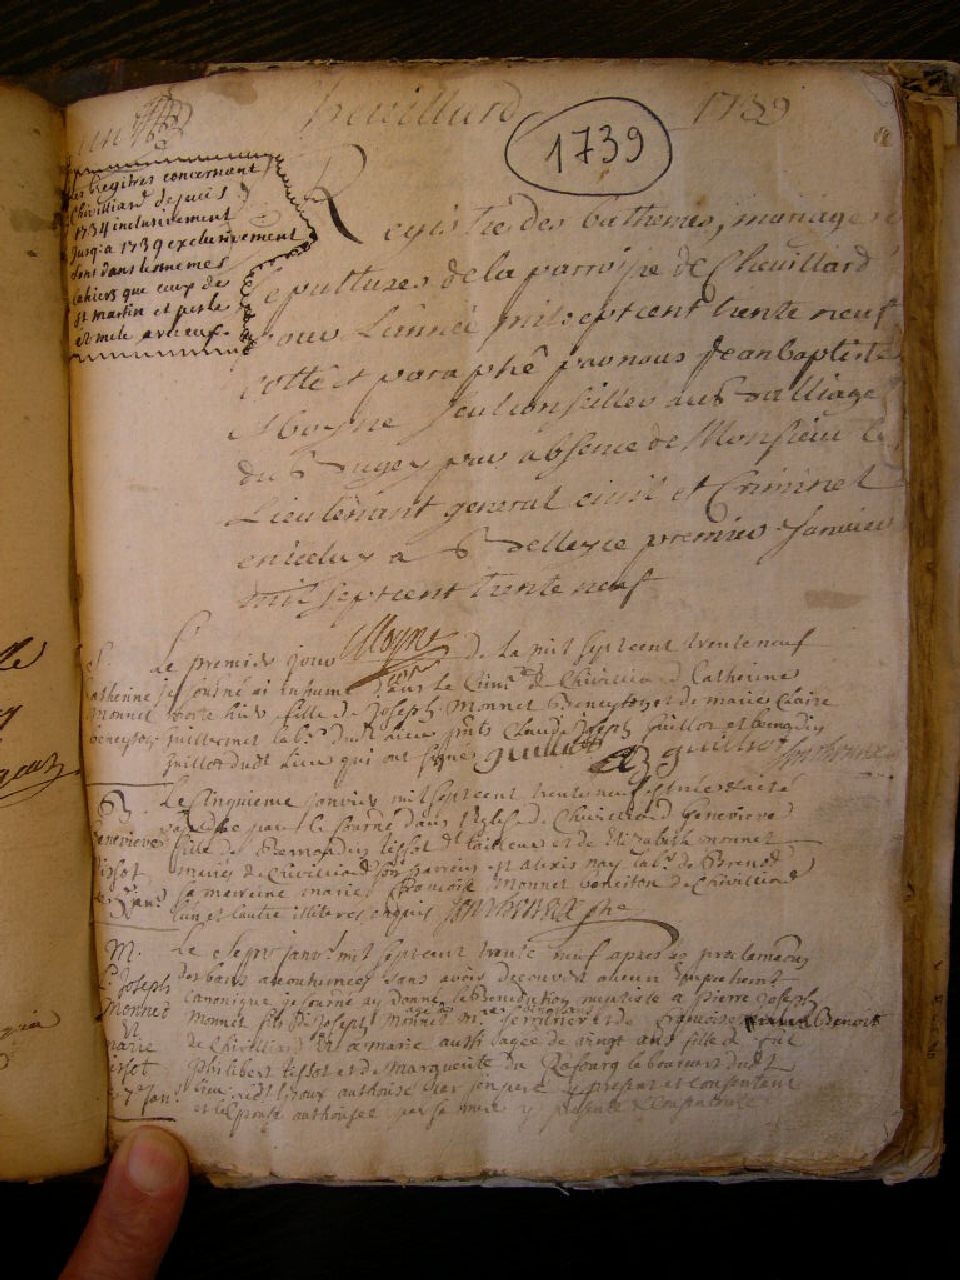 un
Chevilliard 1739
1739
Les Registres concernant
Chivilliard depuis
1734 inclusivement
jusqu'a 1739 exclusivement
sont dans les memes
cahiers que ceux de
st martin et pesle
et mele avec eux.
Registre des bathemes, mariages et
sepultures de la parroisse de Chevillard
pour Lannée mil sept cent trente neuf
cotté et paraphé par nous Jean baptiste
seul conseiller au Balliage
du Bugey pour absence de Monsieur le
Lieutenant general civil et Criminel
en iceluy a Belley ce premier Janvier
mil sept cent trente neuf
S.
Catherine
Monnet
beneyton
Le premier jour de Lan mil sept cent trente neuf
je soürné ai inhumé dans le Cim.re de Chivilliard Catherine
morte hier fille de Joseph Monnet Beneyton et de marie Claire
guillermet lab.r dudt Lieu pnts Claude Joseph Guillot et
guillot dudt Lieu qui ont signé guillot guillot
B
Genevieve
Tissot
Le Cinquieme janvier mil sept cent trente neuf est née et a été
par le sourné dans l'Eglise de Chivilliard Genevieve
fille de Bernardin tissot dt tailleur et de Elizabeth monnet
mariés de Chivilliard son parrein est alexis nay lab.r de Brenod
sa marreine marie Francoise Monnet beneiton de Chivilliard
l'un et l'autre illiteres enquis
M.
P. Joseph
Monnet
&
marie
tissot
7e Jan.
Le sept janv. mil sept cent trente neuf apres les proclamaons
des bans accoutumées sans avoir decouvert aucun Empechemt
Canonique je sourné ay donné la Benediction nuptiale a pierre Joseph
Monnet fils de Joseph Monnet et de francoise Benoit
de Chivilliard et a marie aussi agée de vingt ans fille de
philibert tissot et de Marguerite du Rafourg le bourcet dudt
Lieu ledt Epoux authorisé par son pere y present et consentant
et l'epouse authorisée par sa mere y presente & consentante